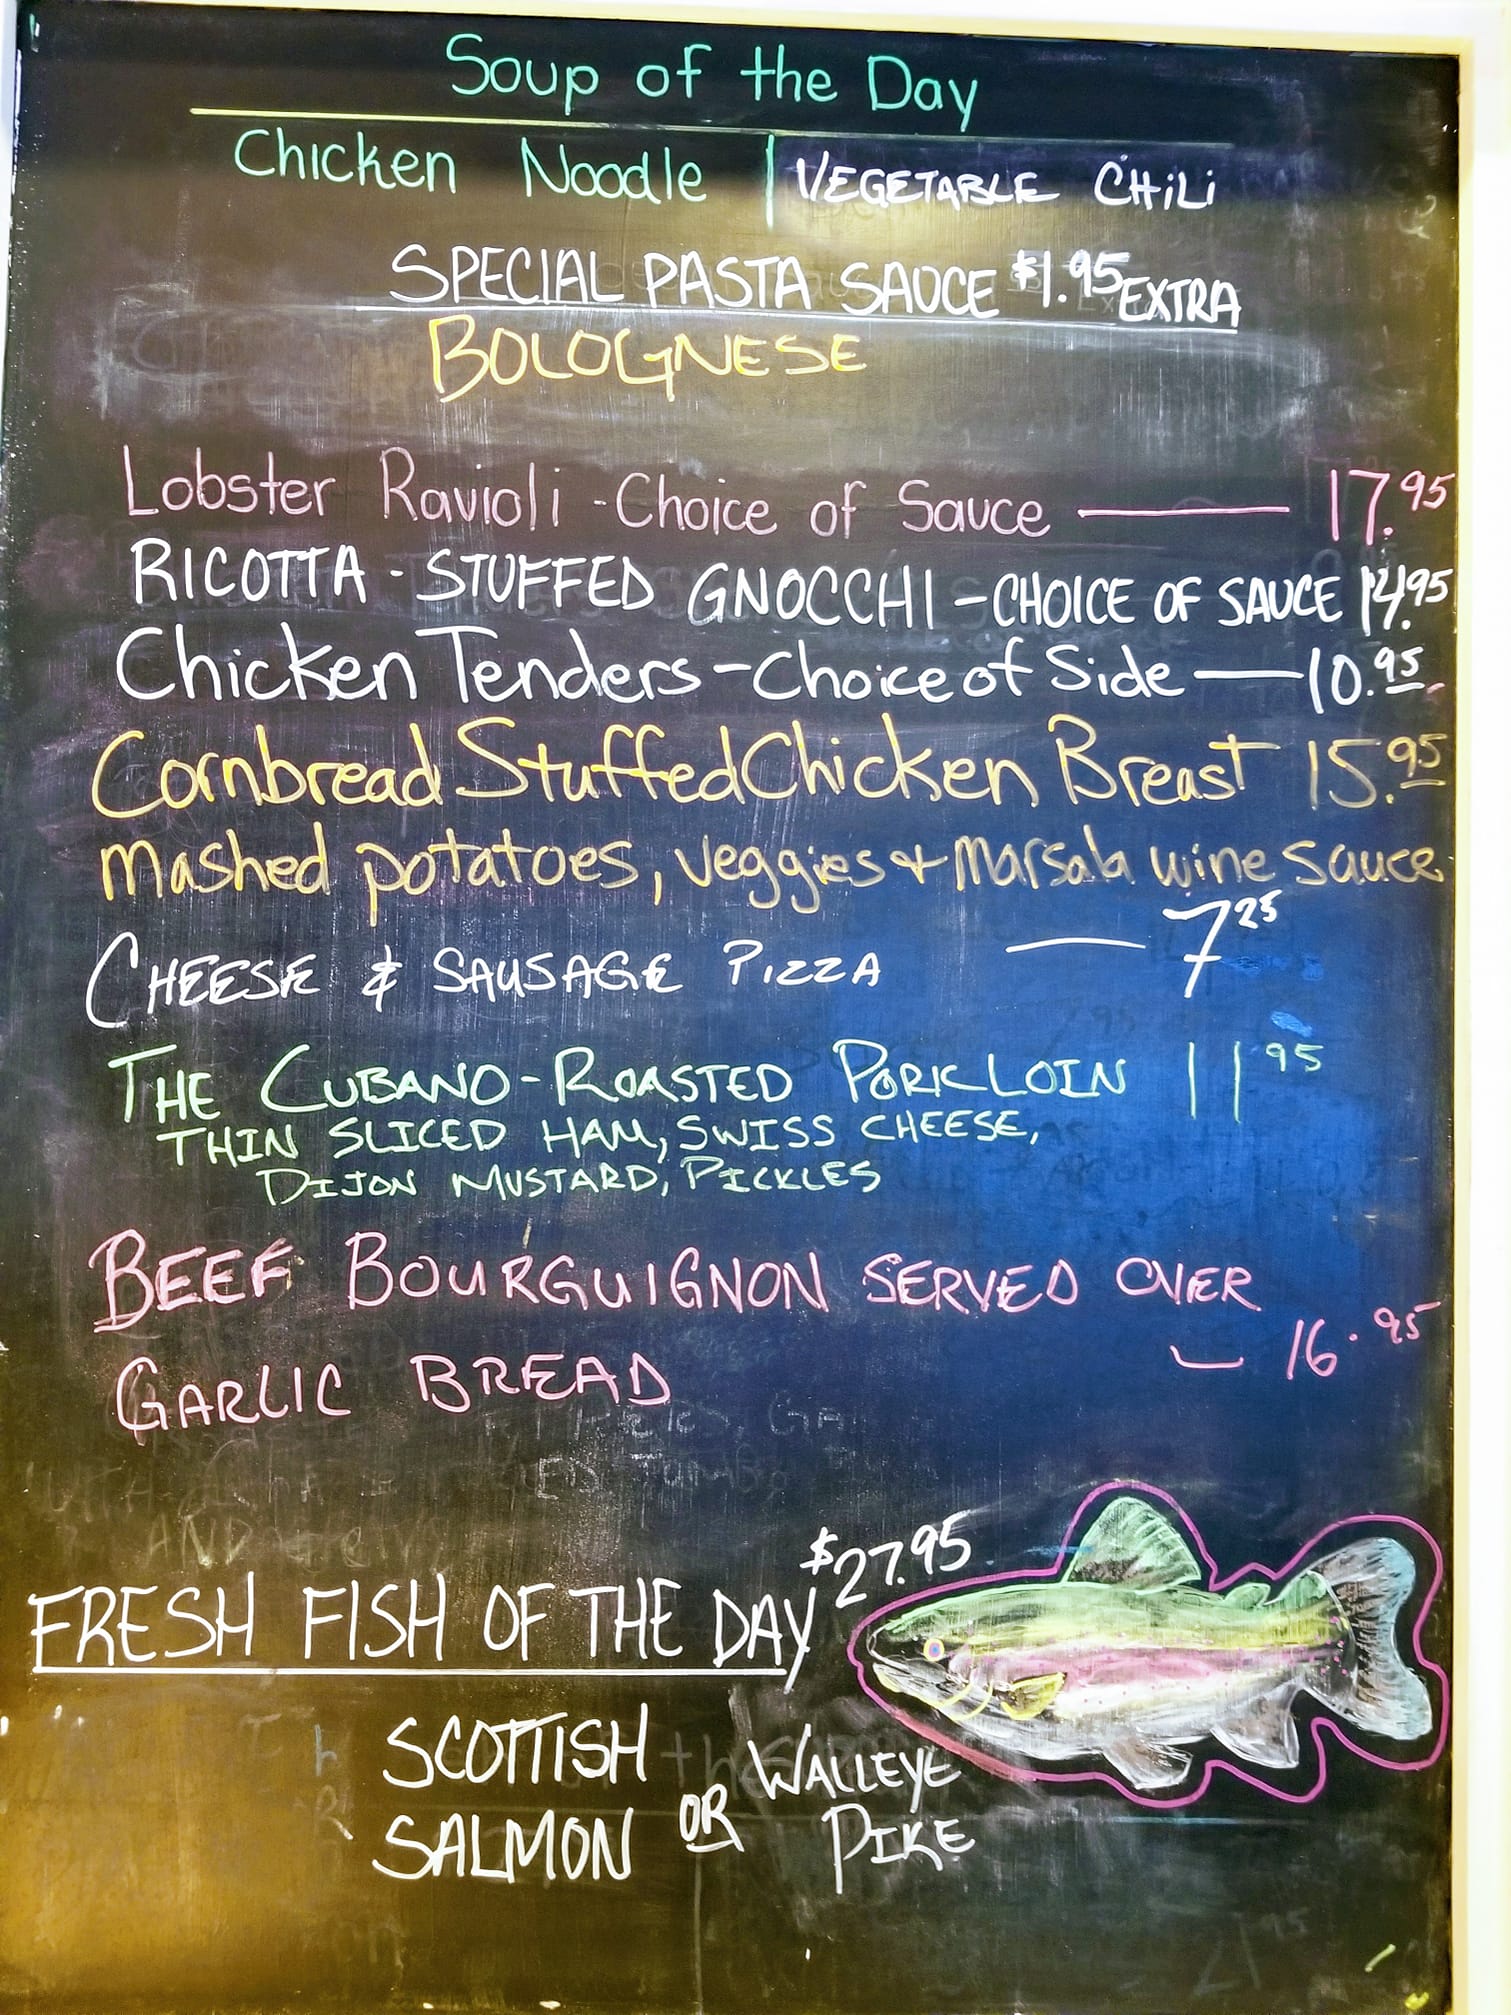 Soup of the Day
Chicken Noodle | VEGETABLE CHiLi
SPECIAL PASTA SAUCE $1.95 EXTRA
BOLOGNESE
Lobster Ravioli - Choice of Sauce — 17.95
RICOTTA - STUFFED GNOCCHI - CHOICE OF SAUCE 14.95
Chicken Tenders - Choice of Side — 10.95
Cornbread Stuffed Chicken Breast 15.95
Mashed potatoes, veggies + Marsala wine sauce
CHEESE & SAUSAGE PIZZA — 7 25
THE CUBANO - ROASTED PORK LOIN 11 95
THIN SLICED HAM, SWISS CHEESE,
DIJON MUSTARD, PICKLES
BEEF BOURGUIGNON SERVED OVER
GARLIC BREAD — 16.95
FRESH FISH OF THE DAY $27.95
SCOTTISH SALMON OR WALLEYE PIKE